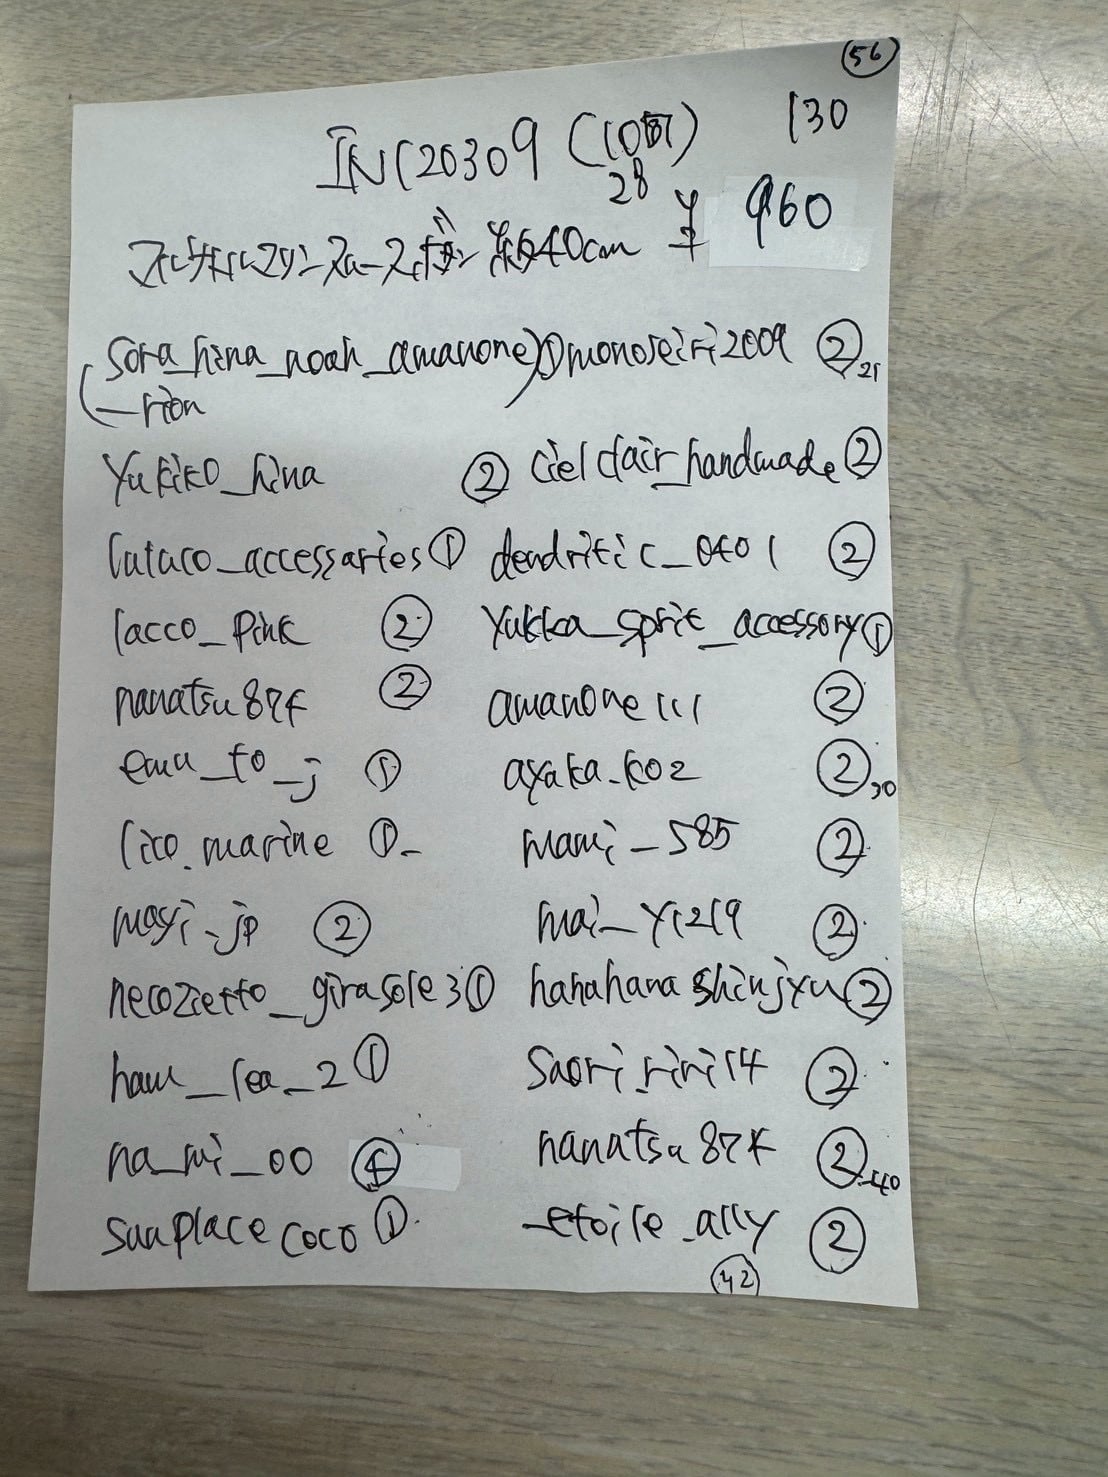 56
INC20309 (10時) 130
28
約40cm ¥ 960
sora_hina_noah_amanone ① monoseiri2009 ② 21
_rion
yukiko_hina ② cielclair_handmade ②
lulaco_accessaries ① dendritic_0401 ②
lacco_pink ② yukka_sprit_accessory ①
nanatsu874 ② amanone111 ②
emu_to_j ① ayaka_ko2 ② 30
lico.marine ① mami_585 ②
mayi_jp ② mai_y1219 ②
necozietto_girasole3 ① hanahanashinjyu ②
hau_lea_2 ① saori.riri14 ②
na_mi_00 ④ nanatsu874 ② 40
sunplacecoco ① _etoile_ally ②
42